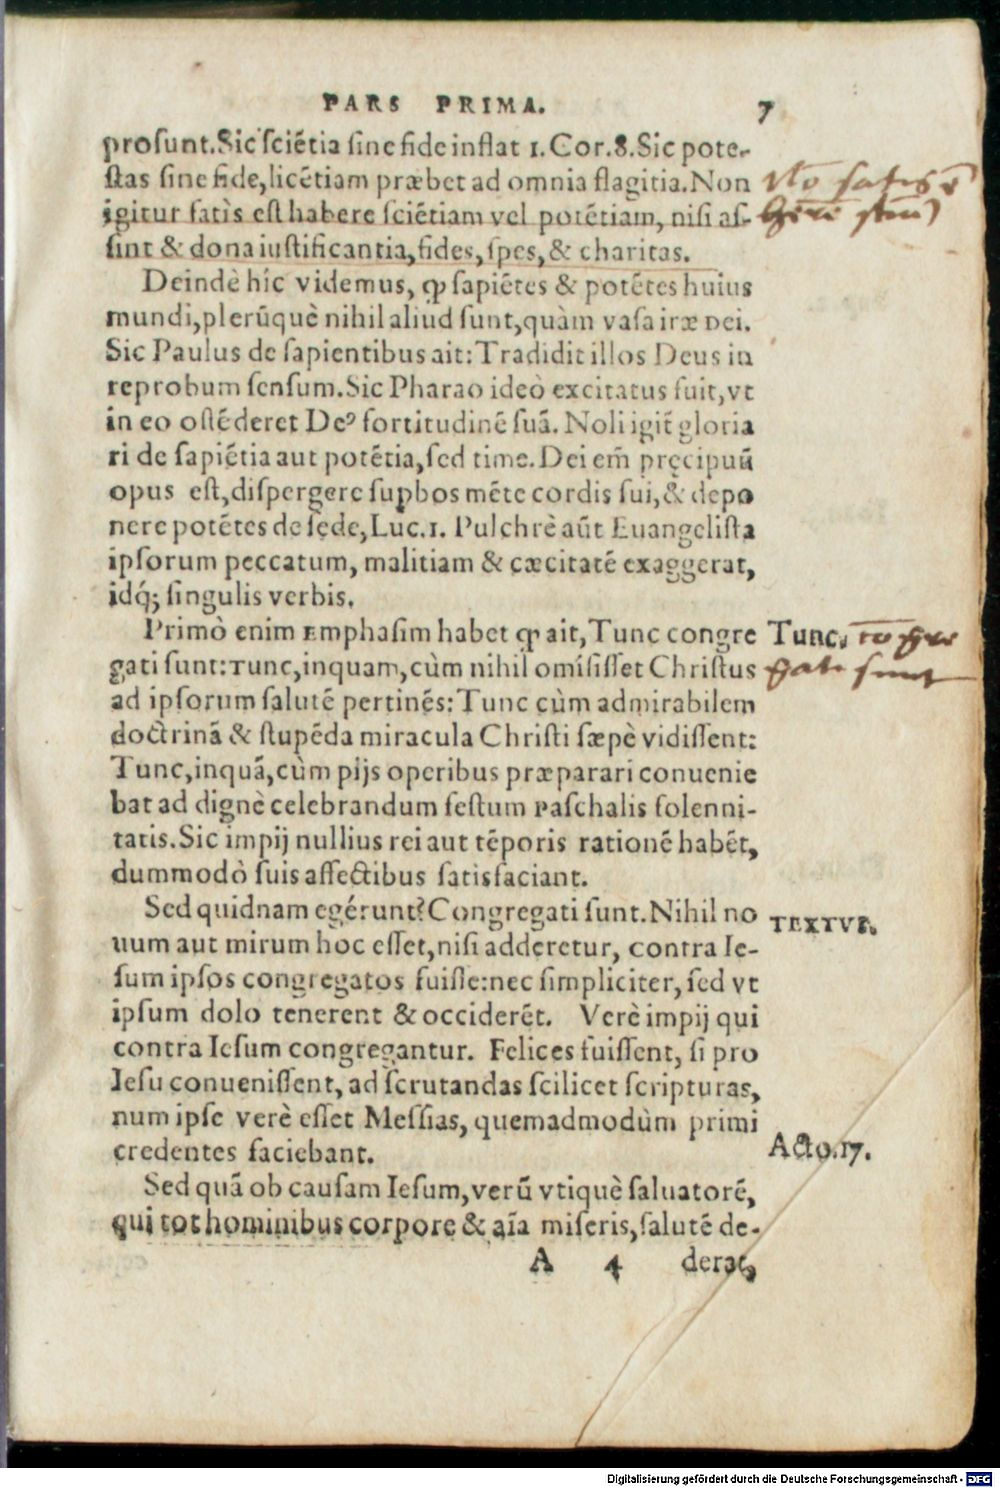 PARS PRIMA. 7
prosunt. Sic sciẽtia sine fide inflat 1. Cor. 8. Sic pote-
stas sine fide, licẽtiam præbet ad omnia flagitia. Non
igitur satìs est habere sciẽtiam vel potẽtiam, nisi as-
sint & dona iustificantia, fides, spes, & charitas.
Deindè hîc videmus, ꝙ sapiẽtes & potẽtes huius
mundi, plerũquè nihil aliud sunt, quàm vasa iræ DEI.
Sic Paulus de sapientibus ait: Tradidit illos Deus in
reprobum sensum. Sic Pharao ideò excitatus fuit, vt
in eo ostẽderet Deꝰ fortitudinẽ suã. Noli igit̃ gloria
ri de sapiẽtia aut potẽtia, sed time. Dei em̃ pręcipuũ
opus est, dispergere supbos mẽte cordis sui, & depo
nere potẽtes de sede, Luc. 1. Pulchrè aũt Euangelista
ipsorum peccatum, malitiam & cæcitatẽ exaggerat,
idq́; singulis verbis.
Primò enim Emphasim habet ꝙ ait, Tunc congre
Tunc.
gati sunt: Tunc, inquam, cùm nihil omísisset Christus
gati sunt
ad ipsorum salutẽ pertinẽs: Tunc cùm admirabilem
doctrinã & stupẽda miracula Christi sæpè vidissent:
Tunc, inquã, cùm pijs operibus præparari conuenie
bat ad dignè celebrandum festum Paschalis solenni-
tatis. Sic impij nullius rei aut tẽporis rationẽ habẽt,
dummodò suis affectibus satisfaciant.
Sed quidnam egérunt? Congregati sunt. Nihil no
TEXTVS.
uum aut mirum hoc esset, nisi adderetur, contra Ie-
sum ipsos congregatos fuisse: nec simpliciter, sed vt
ipsum dolo tenerent & occiderẽt. Verè impij qui
contra Iesum congregantur. Felices fuissent, si pro
Iesu conuenissent, ad scrutandas scilicet scripturas,
num ipse verè esset Messias, quemadmodùm primi
credentes faciebant.
Acto. 17.
Sed quã ob causam Iesum, verũ vtiquè saluatorẽ,
qui tot hominibus corpore & aĩa miseris, salutẽ de-
A 4 derat,
Digitalisierung gefördert durch die Deutsche Forschungsgemeinschaft - DFG